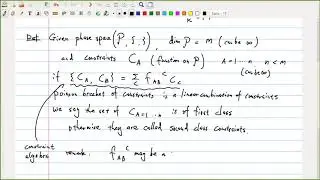 Def. Given phase space (P, {,}), dim P = m (can be ∞)
and constraints C_A (function on P) A = 1...n, n < m
(can be ∞)
if {C_A, C_B} = Σ_c f_{AB}^C C_C
poisson bracket of constraints is a linear combination of constraints
we say the set of C_{A=1...n} is of first class
otherwise they are called second class constraints.
constraint
algebra
remark. f_{AB}^C may be a